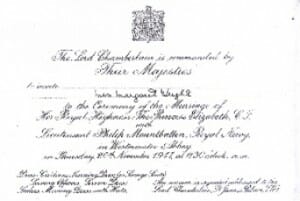 The Lord Chamberlain is commanded by
Their Majesties
to invite
Mrs. Margaret
to the Ceremony of the Marriage of
Her Royal Highness The Princess Elizabeth, C.I.
with
Lieutenant Philip Mountbatten, Royal Navy,
in Westminster Abbey
on Thursday, 20th November, 1947, at 11.30 o'clock, a.m.
Dress: Civilians, Morning Dress (or Lounge Suits)
Serving Officers, Service Dress
Ladies, Morning Dress with Hats
An answer is requested addressed to the
Lord Chamberlain, St James's Palace, S.W.1